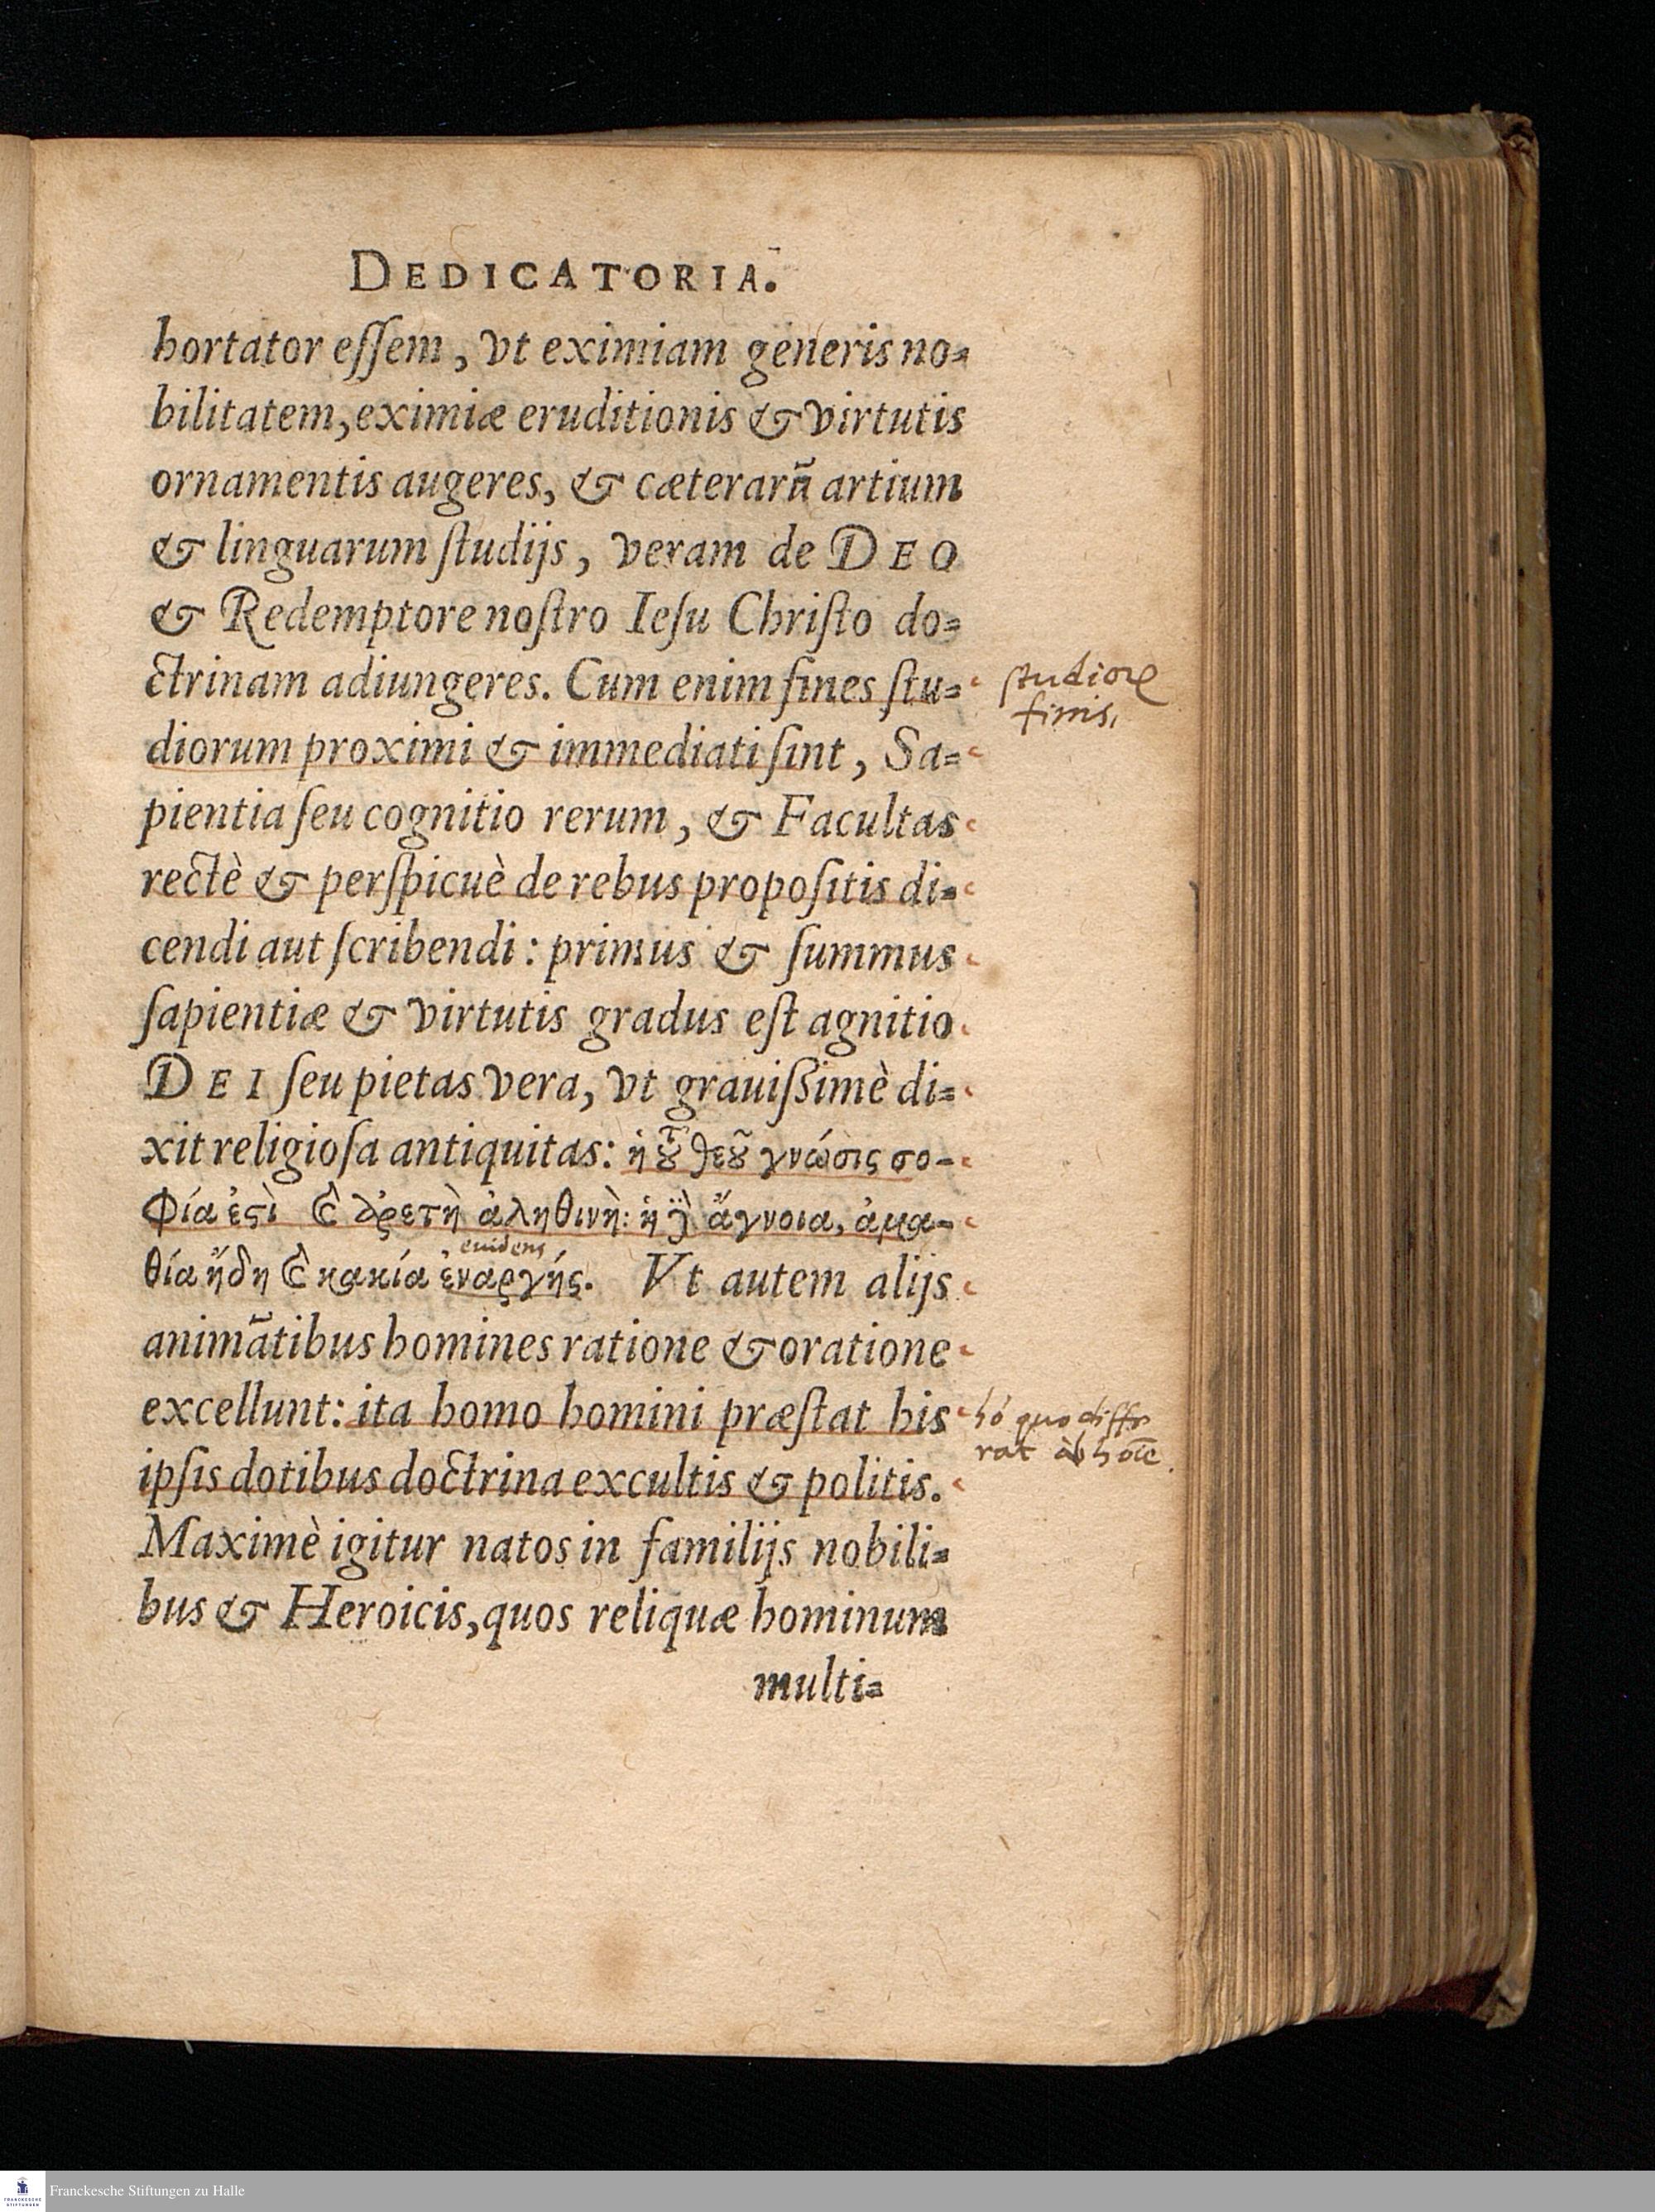 DEDICATORIA.
hortator eſſem, vt eximiam generis no=
bilitatem, eximiæ eruditionis & virtutis
ornamentis augeres, & cæterarũ artium
& linguarum ſtudijs, veram de DEO
& Redemptore noſtro Ieſu Chriſto do=
ctrinam adiungeres. Cum enim fines ſtu=
studiorꝝ
finis,
diorum proximi & immediati ſint, Sa=
pientia ſeu cognitio rerum, & Facultas
rectè & perſpicuè de rebus propoſitis di=
cendi aut ſcribendi: primus & ſummus
ſapientiæ & virtutis gradus eſt agnitio
DEI ſeu pietas vera, vt grauiſsimè di=
xit religioſa antiquitas: ἡ τȣ͂ θεȣ͂ γνώσις σο-
φία ἐςὶ ϗ̀ ἀρετὴ ἀληθινὴ: ἡ ϳ̀ ἄγνοια, ἀμα-
euidens
θία ἤδη ϗ̀ κακία ἐναργής. Vt autem alijs
animãtibus homines ratione & oratione
excellunt: ita homo homini præſtat his
hó quo diffe
rat ab hoīe.
ipſis dotibus doctrina excultis & politis.
Maximè igitur natos in familijs nobili=
bus & Heroicis, quos reliquæ hominum
multi=
Franckesche Stiftungen zu Halle
FRANCKESCHE
STIFTUNGEN